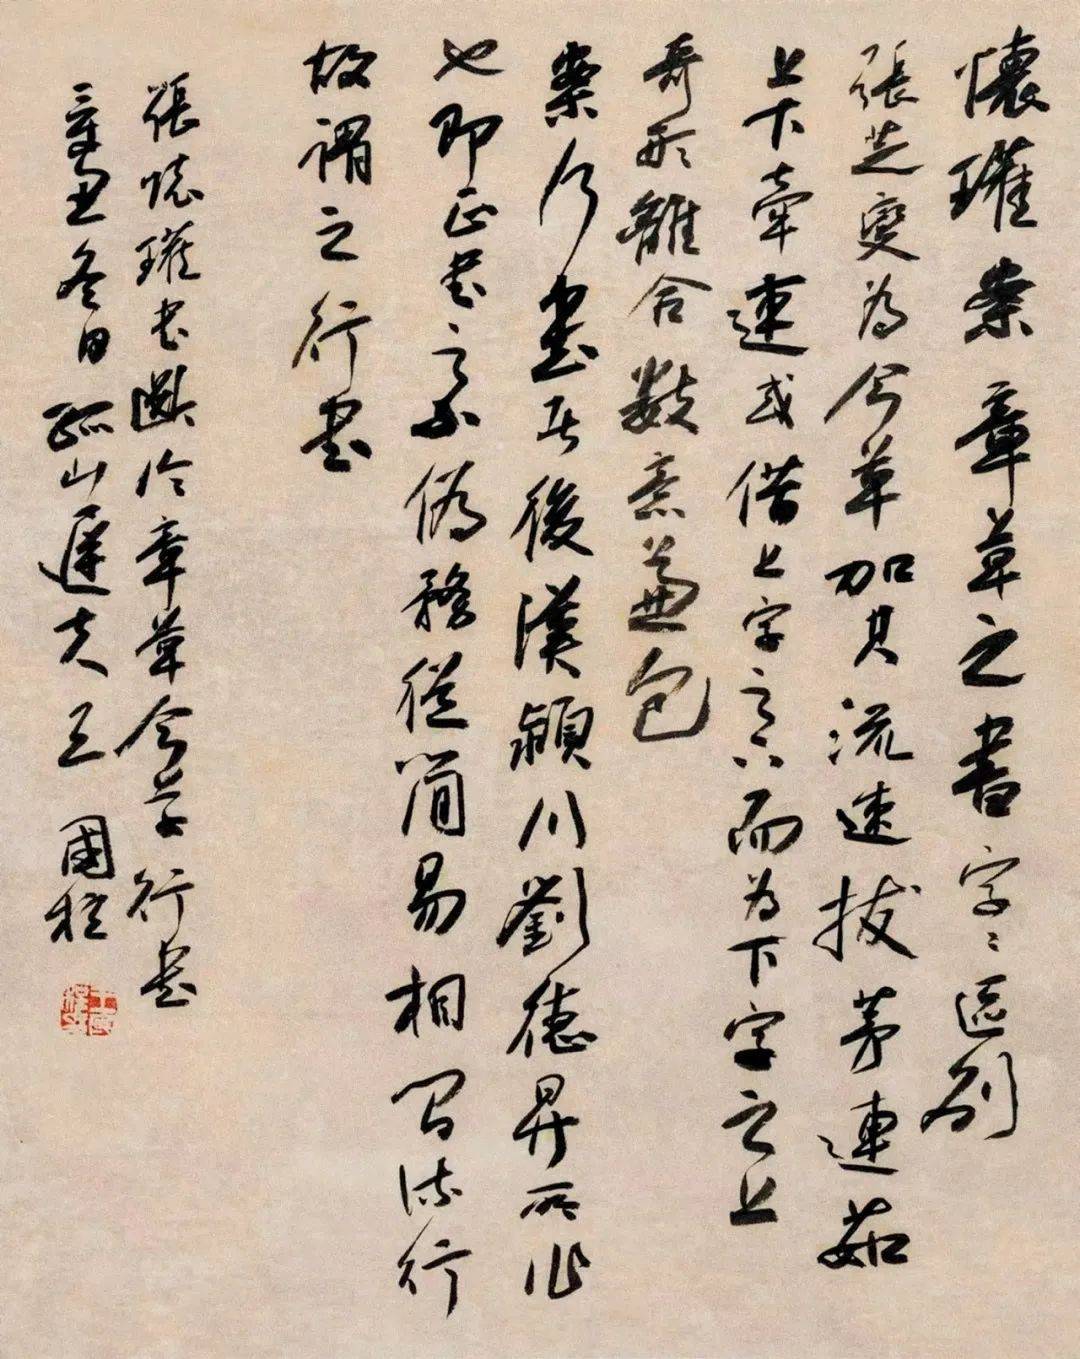 懷瓘案章草之書字〻區別
張芝變為今草加其流速拔茅連茹
上下牽連或借上字之下而為下字之上
奇形離合數意兼包
案行書者後漢潁川劉德昇所作
也即正書之小偽務從簡易相間流行
故謂之行書
張懷瓘書斷論章草今草行書
辛丑冬日孤山遲夫王國